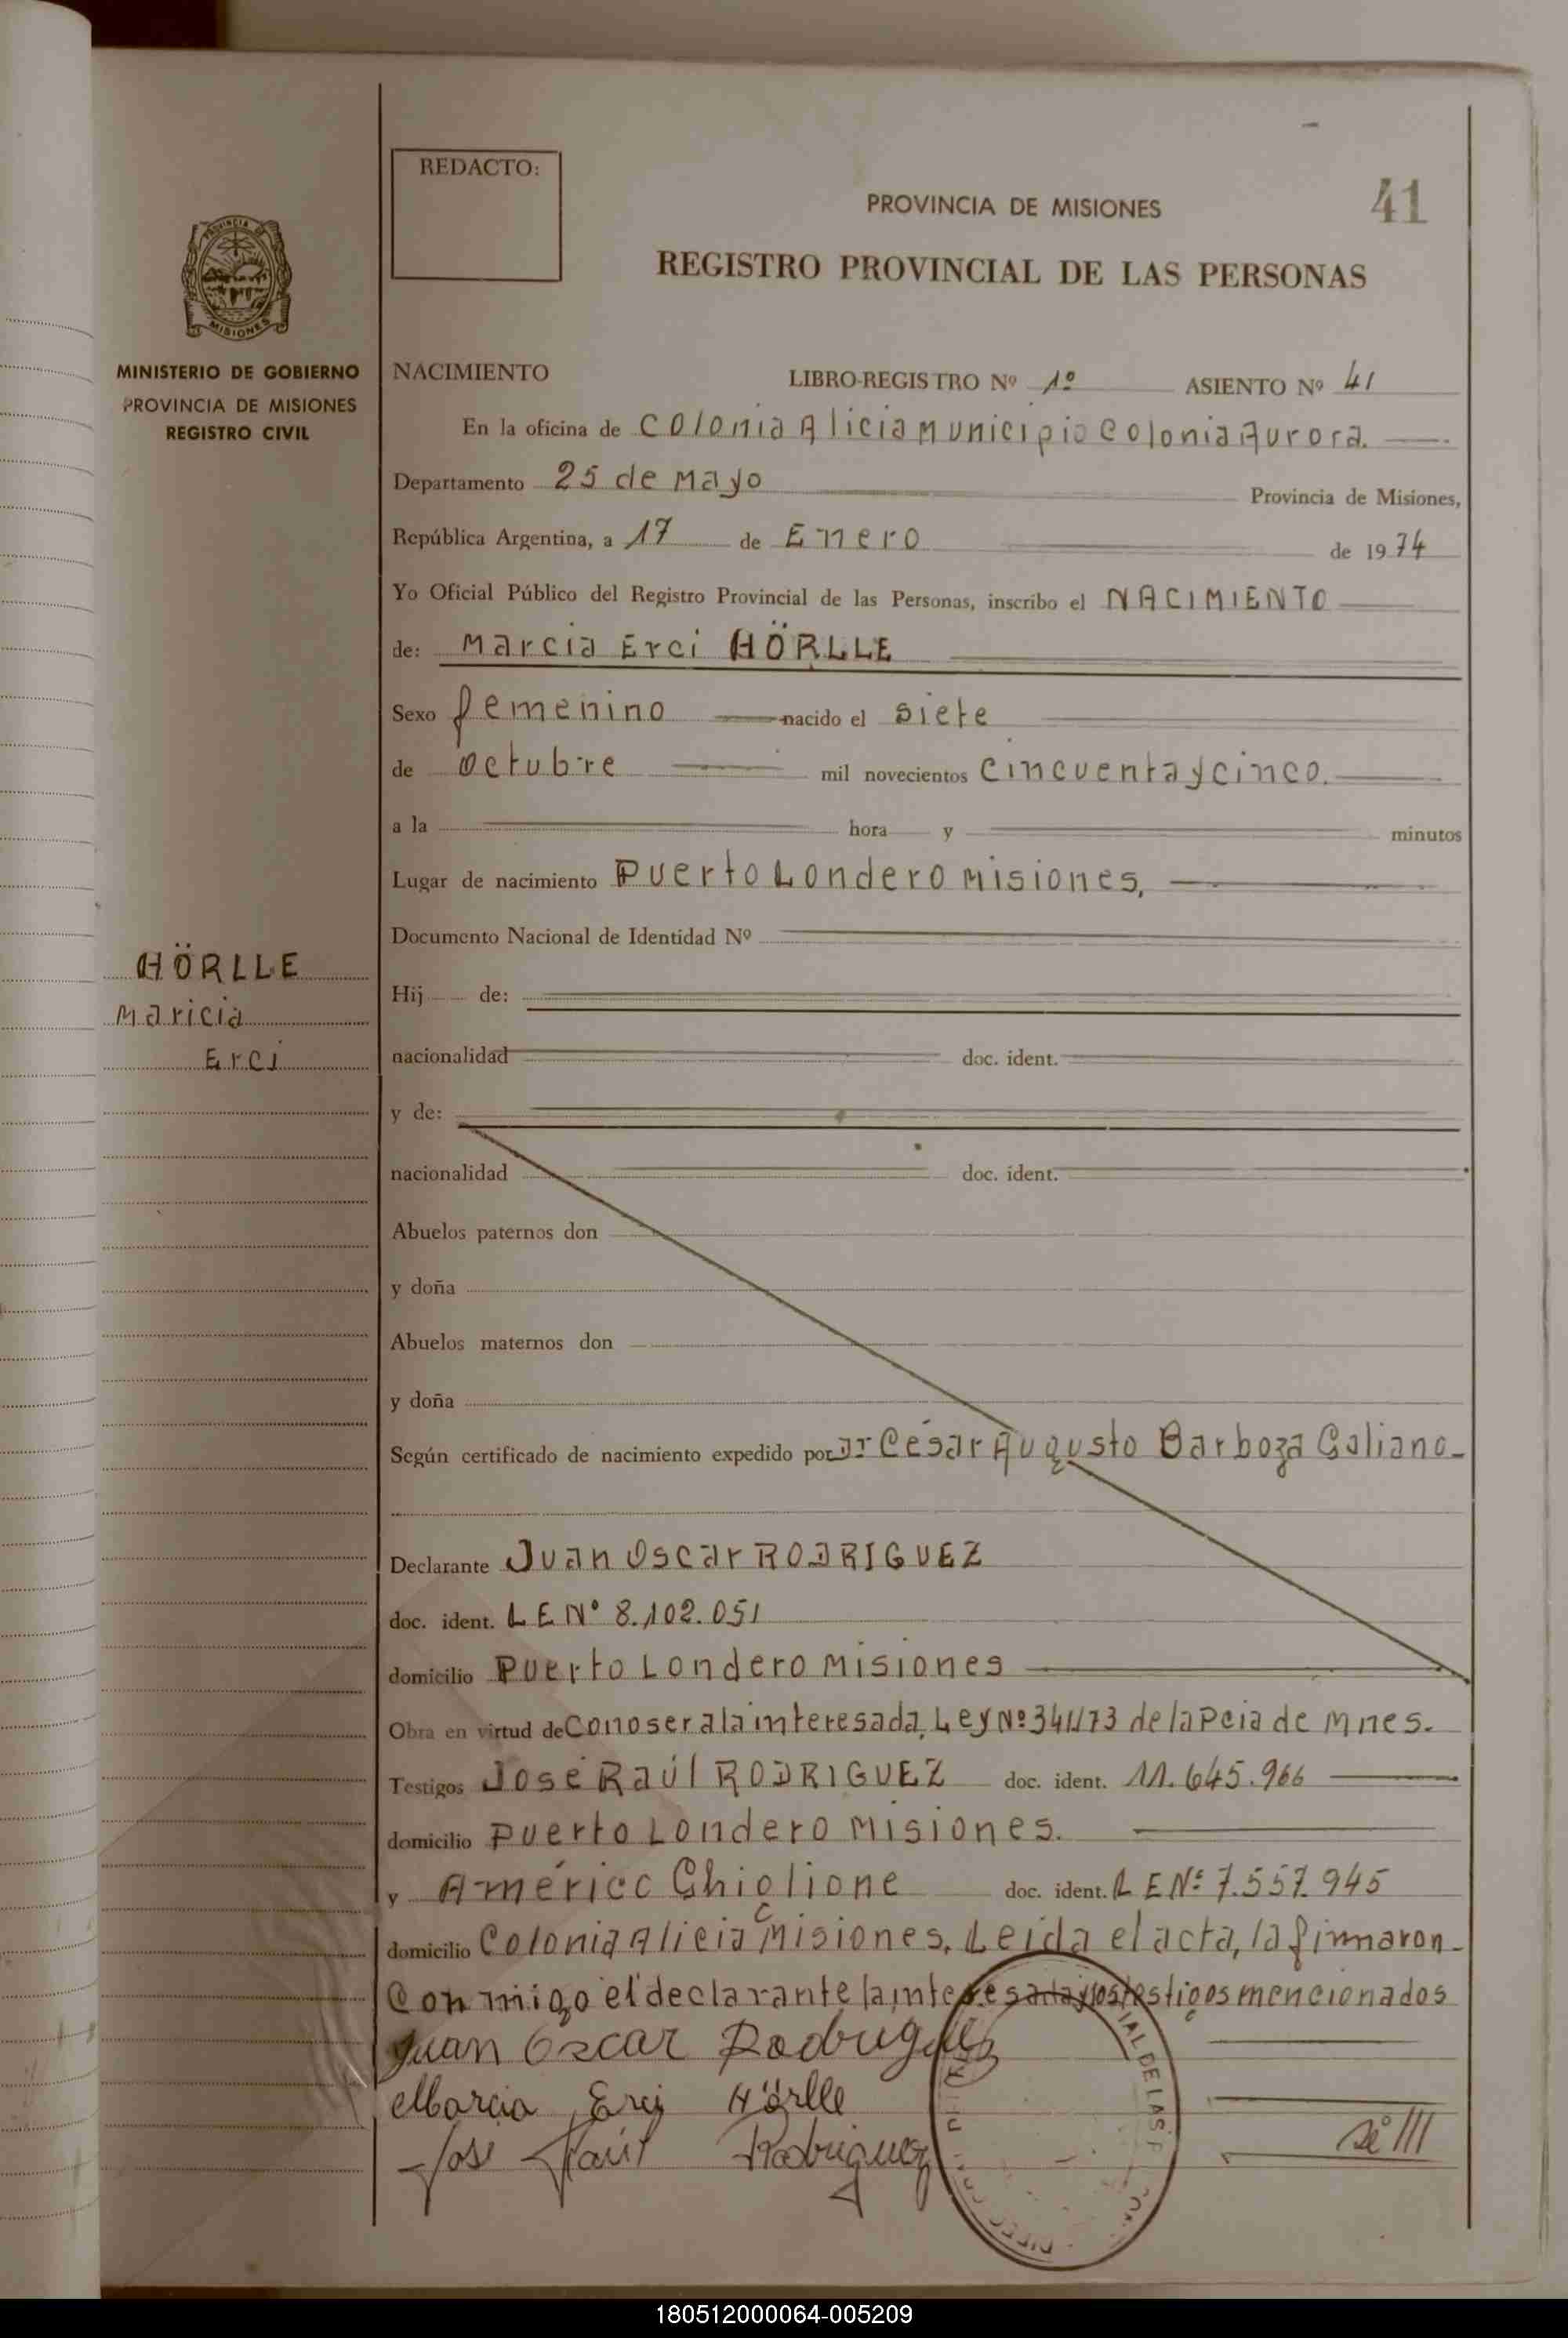 REDACTO:
PROVINCIA DE MISIONES
41
REGISTRO PROVINCIAL DE LAS PERSONAS
PROVINCIA DE
MISIONES
MINISTERIO DE GOBIERNO
PROVINCIA DE MISIONES
REGISTRO CIVIL
NACIMIENTO LIBRO-REGISTRO Nº 1º ASIENTO Nº 41
En la oficina de Colonia Alicia Municipio Colonia Aurora.
Departamento 25 de Mayo Provincia de Misiones,
República Argentina, a 17 de Enero de 1974
Yo Oficial Público del Registro Provincial de las Personas, inscribo el NACIMIENTO
de: Marcia Erci HÖRLLE
Sexo femenino nacido el siete
de octubre mil novecientos cincuenta y cinco.
a la hora y minutos
Lugar de nacimiento Puerto Londero Misiones,
Documento Nacional de Identidad Nº
HÖRLLE
Maricia
Erci
Hij de:
nacionalidad doc. ident.
y de:
nacionalidad doc. ident.
Abuelos paternos don
y doña
Abuelos maternos don
y doña
Según certificado de nacimiento expedido por Dr César Augusto Barboza Galiano
Declarante Juan Oscar RODRIGUEZ
doc. ident. L E Nº 8.102.051
domicilio Puerto Londero Misiones
Obra en virtud de Conoser a la interesada, Ley Nº 341/73 de la Pcia de Mnes.
Testigos José Raúl RODRIGUEZ doc. ident. 11.645.966
domicilio Puerto Londero Misiones.
y Américo Ghiglione doc. ident. L E Nº 7.557.945
domicilio Colonia Alicia Misiones. Leida el acta, la firmaron
Conmigo el declarante la interesada y los testigos mencionados
Juan Oscar Rodriguez
Marcia Erci Hörlle
José Raúl Rodriguez
IAL DE LAS P
180512000064-005209